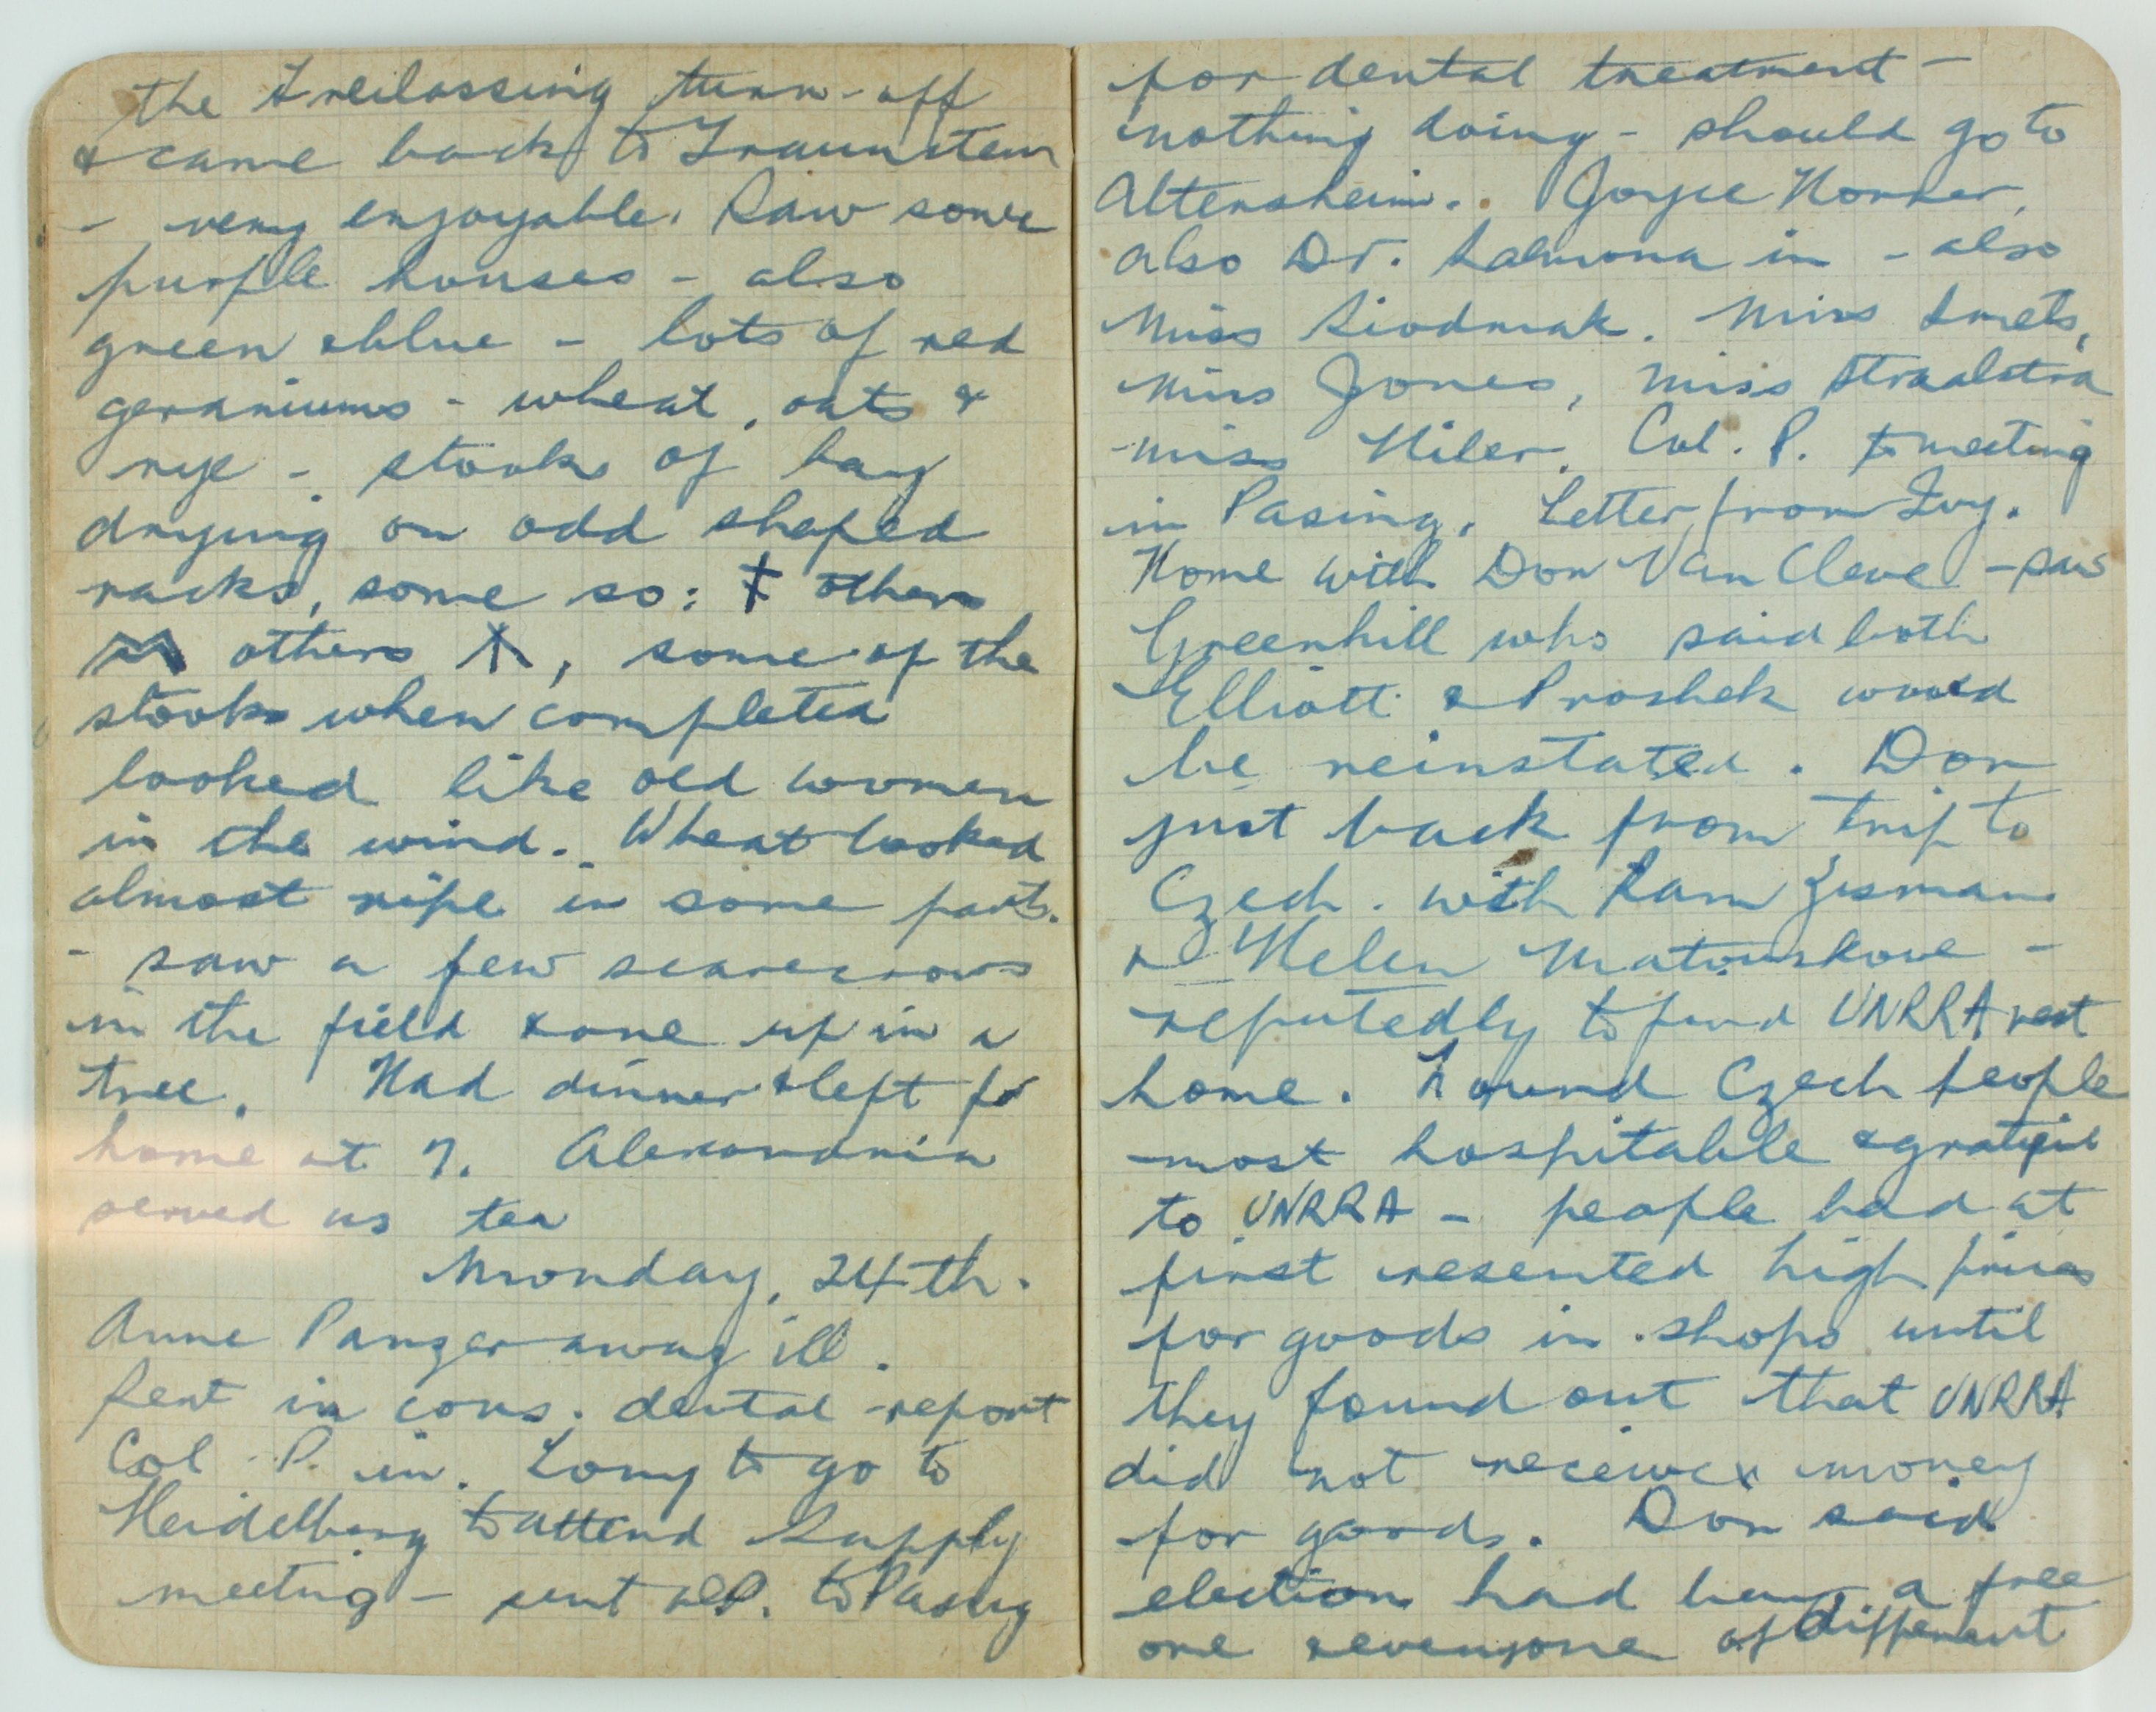 the Freilassing turn-off
& came back to Traunstein
- very enjoyable. Saw some
purple houses - also
green & blue - lots of red
geraniums - wheat, oats &
rye - stooks of hay
drying on odd shaped
racks, some so: others
others , some of the
stooks when completed
looked like old women
in the wind. Wheat looked
almost ripe in some parts.
- saw a few scarecrows
in the field & one up in a
tree. Had dinner & left for
home at 7. Alexandria
served us tea
Monday, 24th.
Anne Panzer away ill.
Sent in cons. dental report
Col P. in. Long to go to
Heidelberg to attend Supply
meeting - sent to Pasing
for dental treatment -
nothing doing - should go to
Altersheim. Joyce Horner,
also Dr. Salmona in - also
Miss Siodmak. Miss Smets,
Miss Jones, Miss Straalstra
Miss Hiler. Col. P. to meeting
in Pasing. Letter from Ivy.
Home with Don Van Cleve - saw
Greenhill who said both
Elliott & Proshek would
be reinstated. Don
just back from trip to
Czech. with Sam Zisman
& Helen Matouskove -
reputedly to find UNRRA rest
home. Found Czech people
most hospitable & grateful
to UNRRA - people had at
first resented high prices
for goods in shops until
they found out that UNRRA
did not receive money
for goods. Don said
election had been a free
one & everyone of different